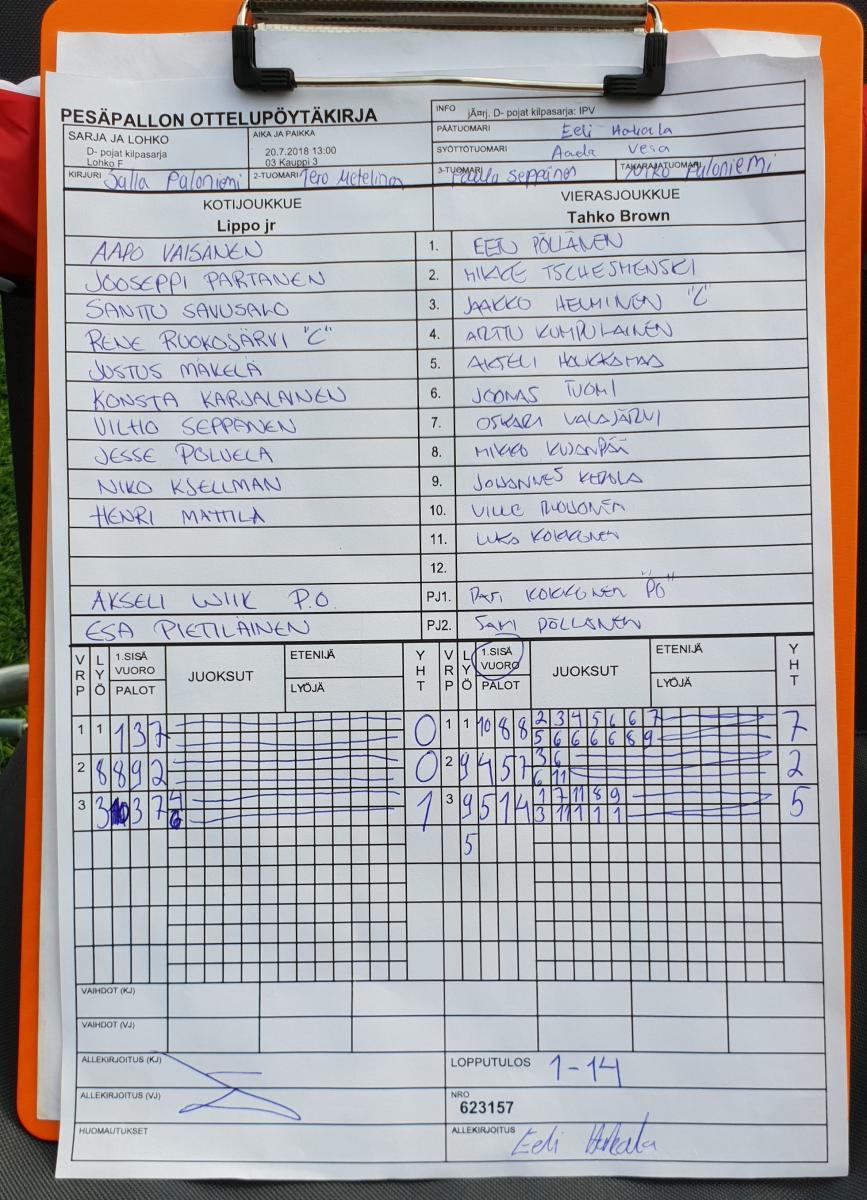 PESÄPALLON OTTELUPÖYTÄKIRJA
INFO jÄ¤rj. D- pojat kilpasarja: IPV
SARJA JA LOHKO
D- pojat kilpasarja
Lohko F
AIKA JA PAIKKA
20.7.2018 13:00
03 Kauppi 3
PÄÄTUOMARI Eeli Hakala
SYÖTTÖTUOMARI Aada Vesa
KIRJURI Salla Paloniemi 2-TUOMARI Tero Metelinen 3-TUOMARI Paula Seppänen TAKARAJATUOMARI Paloniemi
KOTIJOUKKUE VIERASJOUKKUE
Lippo jr Tahko Brown
AAPO VÄISÄNEN 1. EEN PÖLLÄNEN
JOOSEPPI PARTANEN 2. MIKKE TSCHESMENSKI
SANTTU SAVUSALO 3. JAAKKO HELMINEN "C"
RENE RUOKOJÄRVI "C" 4. ARTTU KUMPULAINEN
JUSTUS MÄKELÄ 5. AKSELI HAUKKAMAA
KONSTA KARJALAINEN 6. JOONAS TUOMI
VILHO SEPPÄNEN 7. OSKARI VALAJÄRVI
JESSE POLVELA 8. MIKKO KUJANPÄÄ
NIKO KJELLMAN 9. JOHANNES KEROLA
HENRI MATTILA 10. VILLE
11. KOKKONEN
12.
AKSELI WIIK P.O. PJ1. PASI KOKKONEN "PO"
ESA PIETILÄINEN PJ2. SAMI PÖLLÄNEN
VRP LYÖ 1.SISÄ VUORO PALOT JUOKSUT ETENIJÄ LYÖJÄ YHT VRP LYÖ 1.SISÄ VUORO PALOT JUOKSUT ETENIJÄ LYÖJÄ YHT
1 1 1 3 7 0 1 1 10 8 8 2 3 4 5 6 6 7 7
5 6 6 6 6 8 9
2 8 8 9 2 0 2 9 4 5 7 3 6 2
6 11
3 3 10 3 7 4 1 3 9 5 1 4 1 7 11 8 9 5
6 3 11 1 1 1
5
VAIHDOT (KJ)
VAIHDOT (VJ)
ALLEKIRJOITUS (KJ) LOPPUTULOS 1-14
ALLEKIRJOITUS (VJ) NRO
623157
HUOMAUTUKSET ALLEKIRJOITUS Eeli Hakala